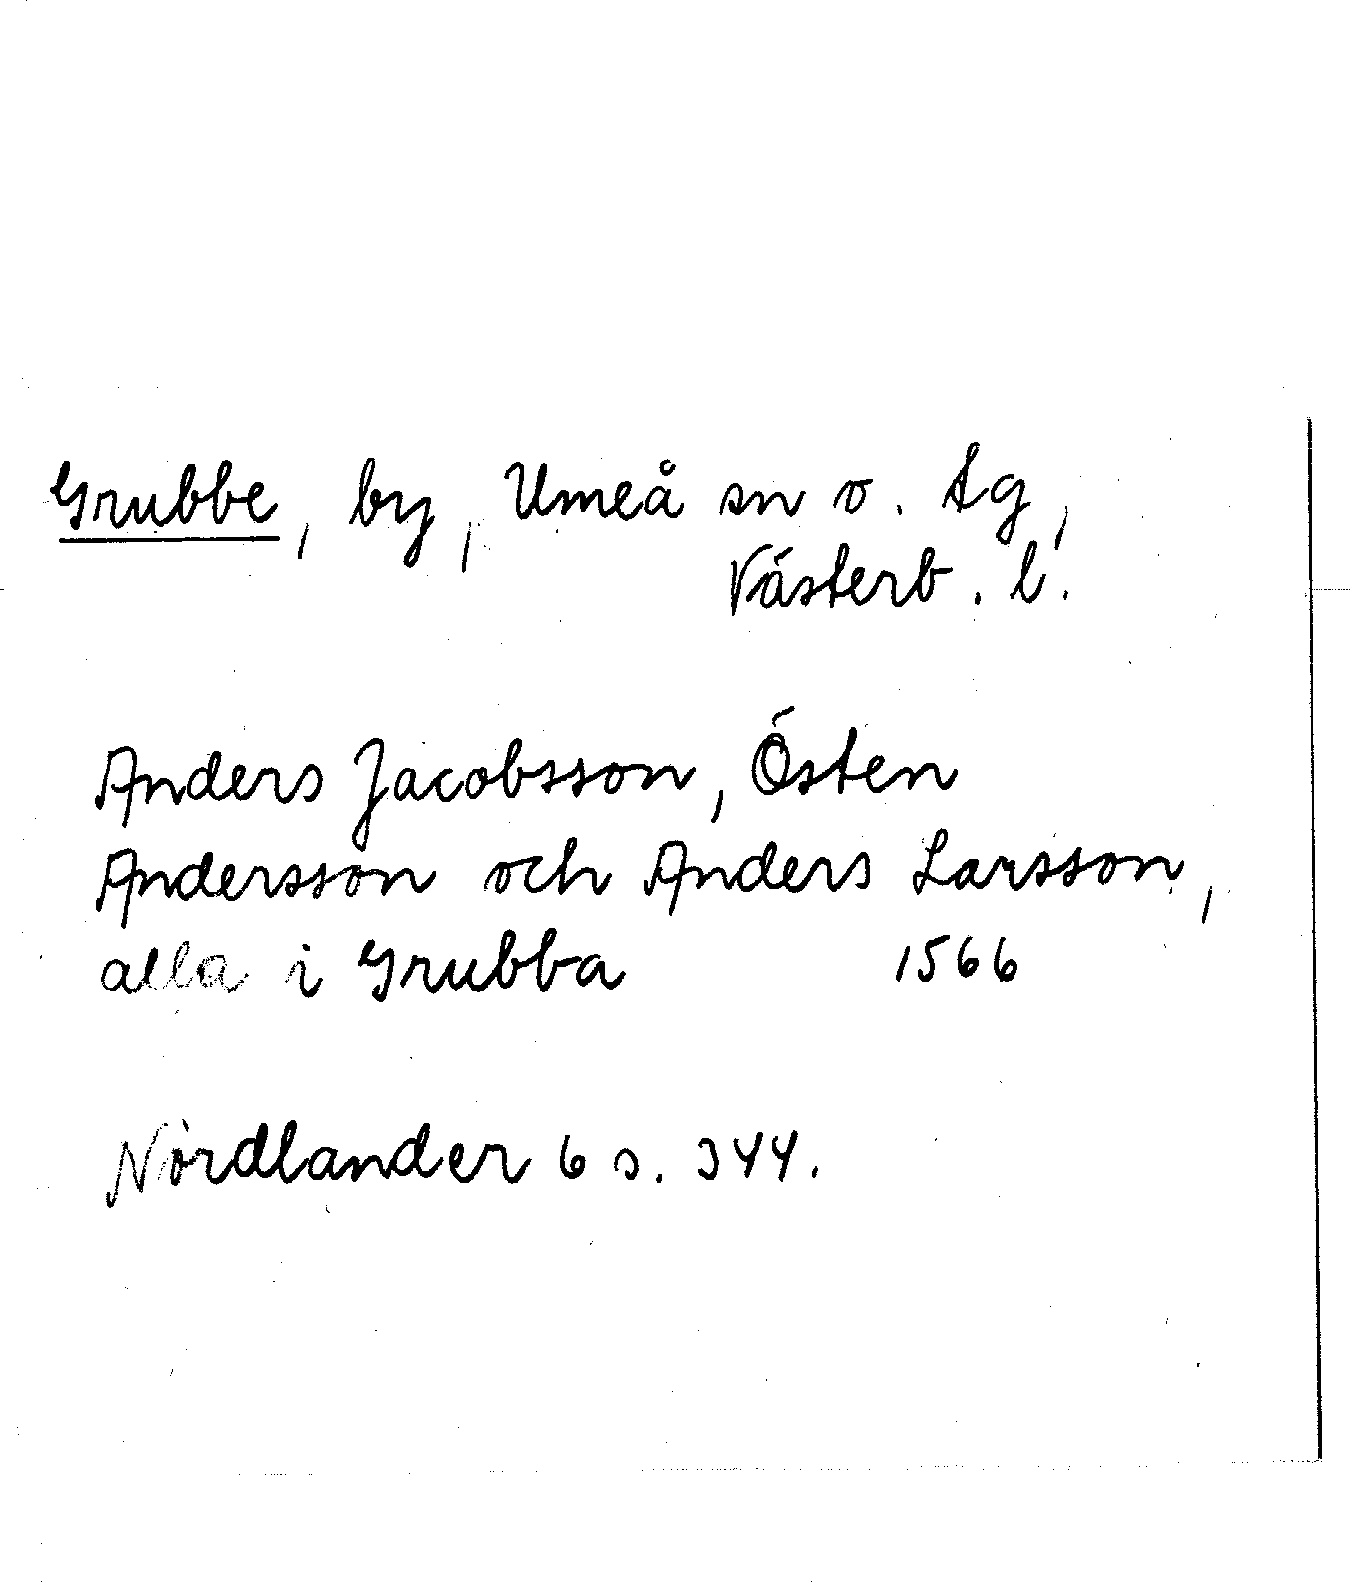 Grubbe, by, Umeå sn o. tg,
Västerb. l.
Anders Jacobsson, Östen
Andersson och Anders Larsson,
alla i Grubba 1566
Nordlander 6 s. 344.